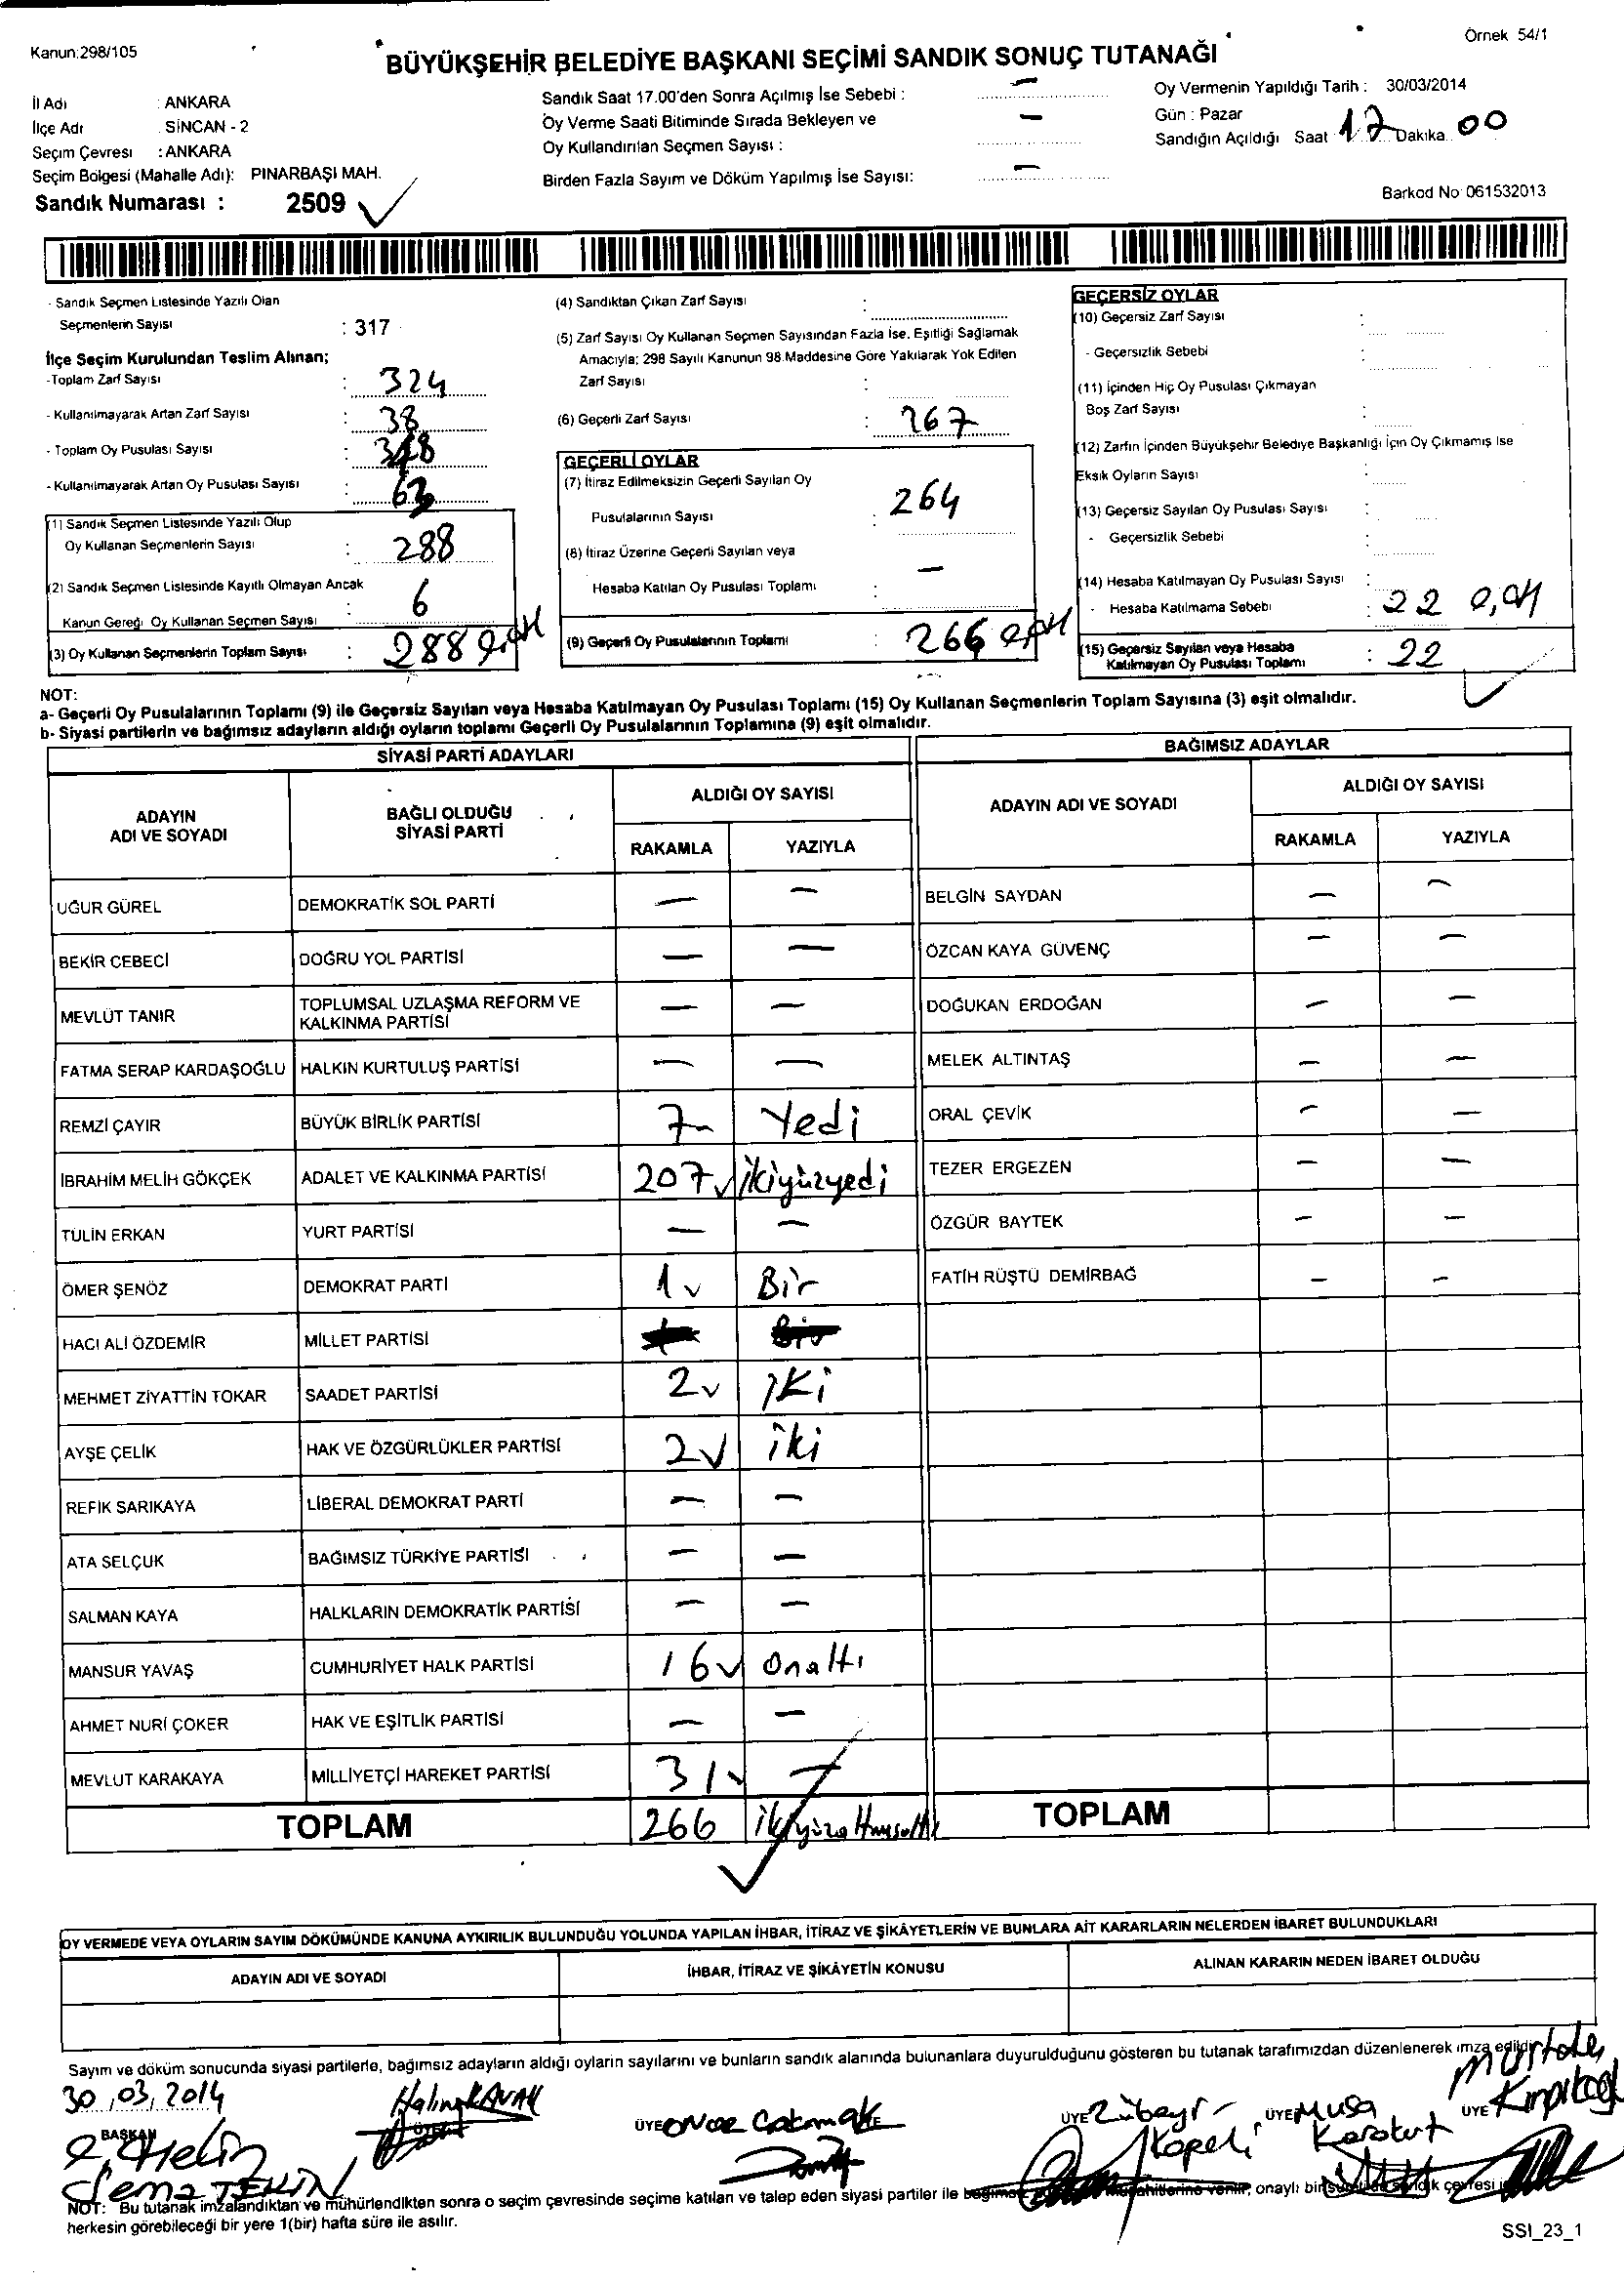 Kanun:298/105
Örnek 54/1
BÜYÜKŞEHİR BELEDİYE BAŞKANI SEÇİMİ SANDIK SONUÇ TUTANAĞI
İl Adı : ANKARA
İlçe Adı : SİNCAN - 2
Seçim Çevresi : ANKARA
Seçim Bölgesi (Mahalle Adı): PINARBAŞI MAH.
Sandık Numarası : 2509
Sandık Saat 17.00'den Sonra Açılmış İse Sebebi : —
Oy Verme Saati Bitiminde Sırada Bekleyen ve
Oy Kullandırılan Seçmen Sayısı : —
Birden Fazla Sayım ve Döküm Yapılmış İse Sayısı: —
Oy Vermenin Yapıldığı Tarih : 30/03/2014
Gün : Pazar
Sandığın Açıldığı Saat 17 Dakika.. 00
Barkod No: 061532013
- Sandık Seçmen Listesinde Yazılı Olan
Seçmenlerin Sayısı : 317
İlçe Seçim Kurulundan Teslim Alınan;
-Toplam Zarf Sayısı : 324
- Kullanılmayarak Artan Zarf Sayısı : 38
- Toplam Oy Pusulası Sayısı : 348
- Kullanılmayarak Artan Oy Pusulası Sayısı :
(1) Sandık Seçmen Listesinde Yazılı Olup
Oy Kullanan Seçmenlerin Sayısı : 288
(2) Sandık Seçmen Listesinde Kayıtlı Olmayan Ancak
Kanun Gereği Oy Kullanan Seçmen Sayısı : 6
(3) Oy Kullanan Seçmenlerin Toplam Sayısı : 288
(4) Sandıktan Çıkan Zarf Sayısı :
(5) Zarf Sayısı Oy Kullanan Seçmen Sayısından Fazla İse, Eşitliği Sağlamak
Amacıyla; 298 Sayılı Kanunun 98.Maddesine Göre Yakılarak Yok Edilen
Zarf Sayısı :
(6) Geçerli Zarf Sayısı : 267
GEÇERLİ OYLAR
(7) İtiraz Edilmeksizin Geçerli Sayılan Oy
Pusulalarının Sayısı : 264
(8) İtiraz Üzerine Geçerli Sayılan veya
Hesaba Katılan Oy Pusulası Toplamı : —
(9) Geçerli Oy Pusulalarının Toplamı : 266
GEÇERSİZ OYLAR
(10) Geçersiz Zarf Sayısı :
- Geçersizlik Sebebi :
(11) İçinden Hiç Oy Pusulası Çıkmayan
Boş Zarf Sayısı :
(12) Zarfın İçinden Büyükşehir Belediye Başkanlığı İçin Oy Çıkmamış İse
Eksik Oyların Sayısı :
(13) Geçersiz Sayılan Oy Pusulası Sayısı :
- Geçersizlik Sebebi :
(14) Hesaba Katılmayan Oy Pusulası Sayısı :
- Hesaba Katılmama Sebebi : 22
(15) Geçersiz Sayılan veya Hesaba
Katılmayan Oy Pusulası Toplamı : 22
NOT:
a- Geçerli Oy Pusulalarının Toplamı (9) ile Geçersiz Sayılan veya Hesaba Katılmayan Oy Pusulası Toplamı (15) Oy Kullanan Seçmenlerin Toplam Sayısına (3) eşit olmalıdır.
b- Siyasi partilerin ve bağımsız adayların aldığı oyların toplamı Geçerli Oy Pusulalarının Toplamına (9) eşit olmalıdır.
SİYASİ PARTİ ADAYLARI
ADAYIN ADI VE SOYADI BAĞLI OLDUĞU SİYASİ PARTİ ALDIĞI OY SAYISI
RAKAMLA YAZIYLA
UĞUR GÜREL DEMOKRATİK SOL PARTİ — —
BEKİR CEBECİ DOĞRU YOL PARTİSİ — —
MEVLÜT TANIR TOPLUMSAL UZLAŞMA REFORM VE KALKINMA PARTİSİ — —
FATMA SERAP KARDAŞOĞLU HALKIN KURTULUŞ PARTİSİ — —
REMZİ ÇAYIR BÜYÜK BİRLİK PARTİSİ 7 Yedi
İBRAHİM MELİH GÖKÇEK ADALET VE KALKINMA PARTİSİ 207 ikiyüzyedi
TÜLİN ERKAN YURT PARTİSİ — —
ÖMER ŞENÖZ DEMOKRAT PARTİ 1 Bir
HACI ALİ ÖZDEMİR MİLLET PARTİSİ
MEHMET ZİYATTİN TOKAR SAADET PARTİSİ 2 İKi
AYŞE ÇELİK HAK VE ÖZGÜRLÜKLER PARTİSİ 2 iki
REFİK SARIKAYA LİBERAL DEMOKRAT PARTİ — —
ATA SELÇUK BAĞIMSIZ TÜRKİYE PARTİSİ — —
SALMAN KAYA HALKLARIN DEMOKRATİK PARTİSİ — —
MANSUR YAVAŞ CUMHURİYET HALK PARTİSİ 16 Onaltı
AHMET NURİ ÇOKER HAK VE EŞİTLİK PARTİSİ — —
MEVLUT KARAKAYA MİLLİYETÇİ HAREKET PARTİSİ 31 —
TOPLAM 266 ikiyüzaltmışaltı
BAĞIMSIZ ADAYLAR
ADAYIN ADI VE SOYADI ALDIĞI OY SAYISI
RAKAMLA YAZIYLA
BELGİN SAYDAN — —
ÖZCAN KAYA GÜVENÇ — —
DOĞUKAN ERDOĞAN — —
MELEK ALTINTAŞ — —
ORAL ÇEVİK — —
TEZER ERGEZEN — —
ÖZGÜR BAYTEK — —
FATİH RÜŞTÜ DEMİRBAĞ — —
TOPLAM
OY VERMEDE VEYA OYLARIN SAYIM DÖKÜMÜNDE KANUNA AYKIRILIK BULUNDUĞU YOLUNDA YAPILAN İHBAR, İTİRAZ VE ŞİKÂYETLERİN VE BUNLARA AİT KARARLARIN NELERDEN İBARET BULUNDUKLARI
ADAYIN ADI VE SOYADI İHBAR, İTİRAZ VE ŞİKÂYETİN KONUSU ALINAN KARARIN NEDEN İBARET OLDUĞU
Sayım ve döküm sonucunda siyasi partilerle, bağımsız adayların aldığı oyların sayılarını ve bunların sandık alanında bulunanlara duyurulduğunu gösteren bu tutanak tarafımızdan düzenlenerek imza edildi.
30.03.2014
BAŞKAN
Sema TEKİN
ÜYE
ÜYE Zübeyr
ÜYE Musa
ÜYE
NOT: Bu tutanak imzalandıktan ve mühürlendikten sonra o seçim çevresinde seçime katılan ve talep eden siyasi partiler ile
onaylı bir
herkesin görebileceği bir yere 1(bir) hafta süre ile asılır.
SSI_23_1